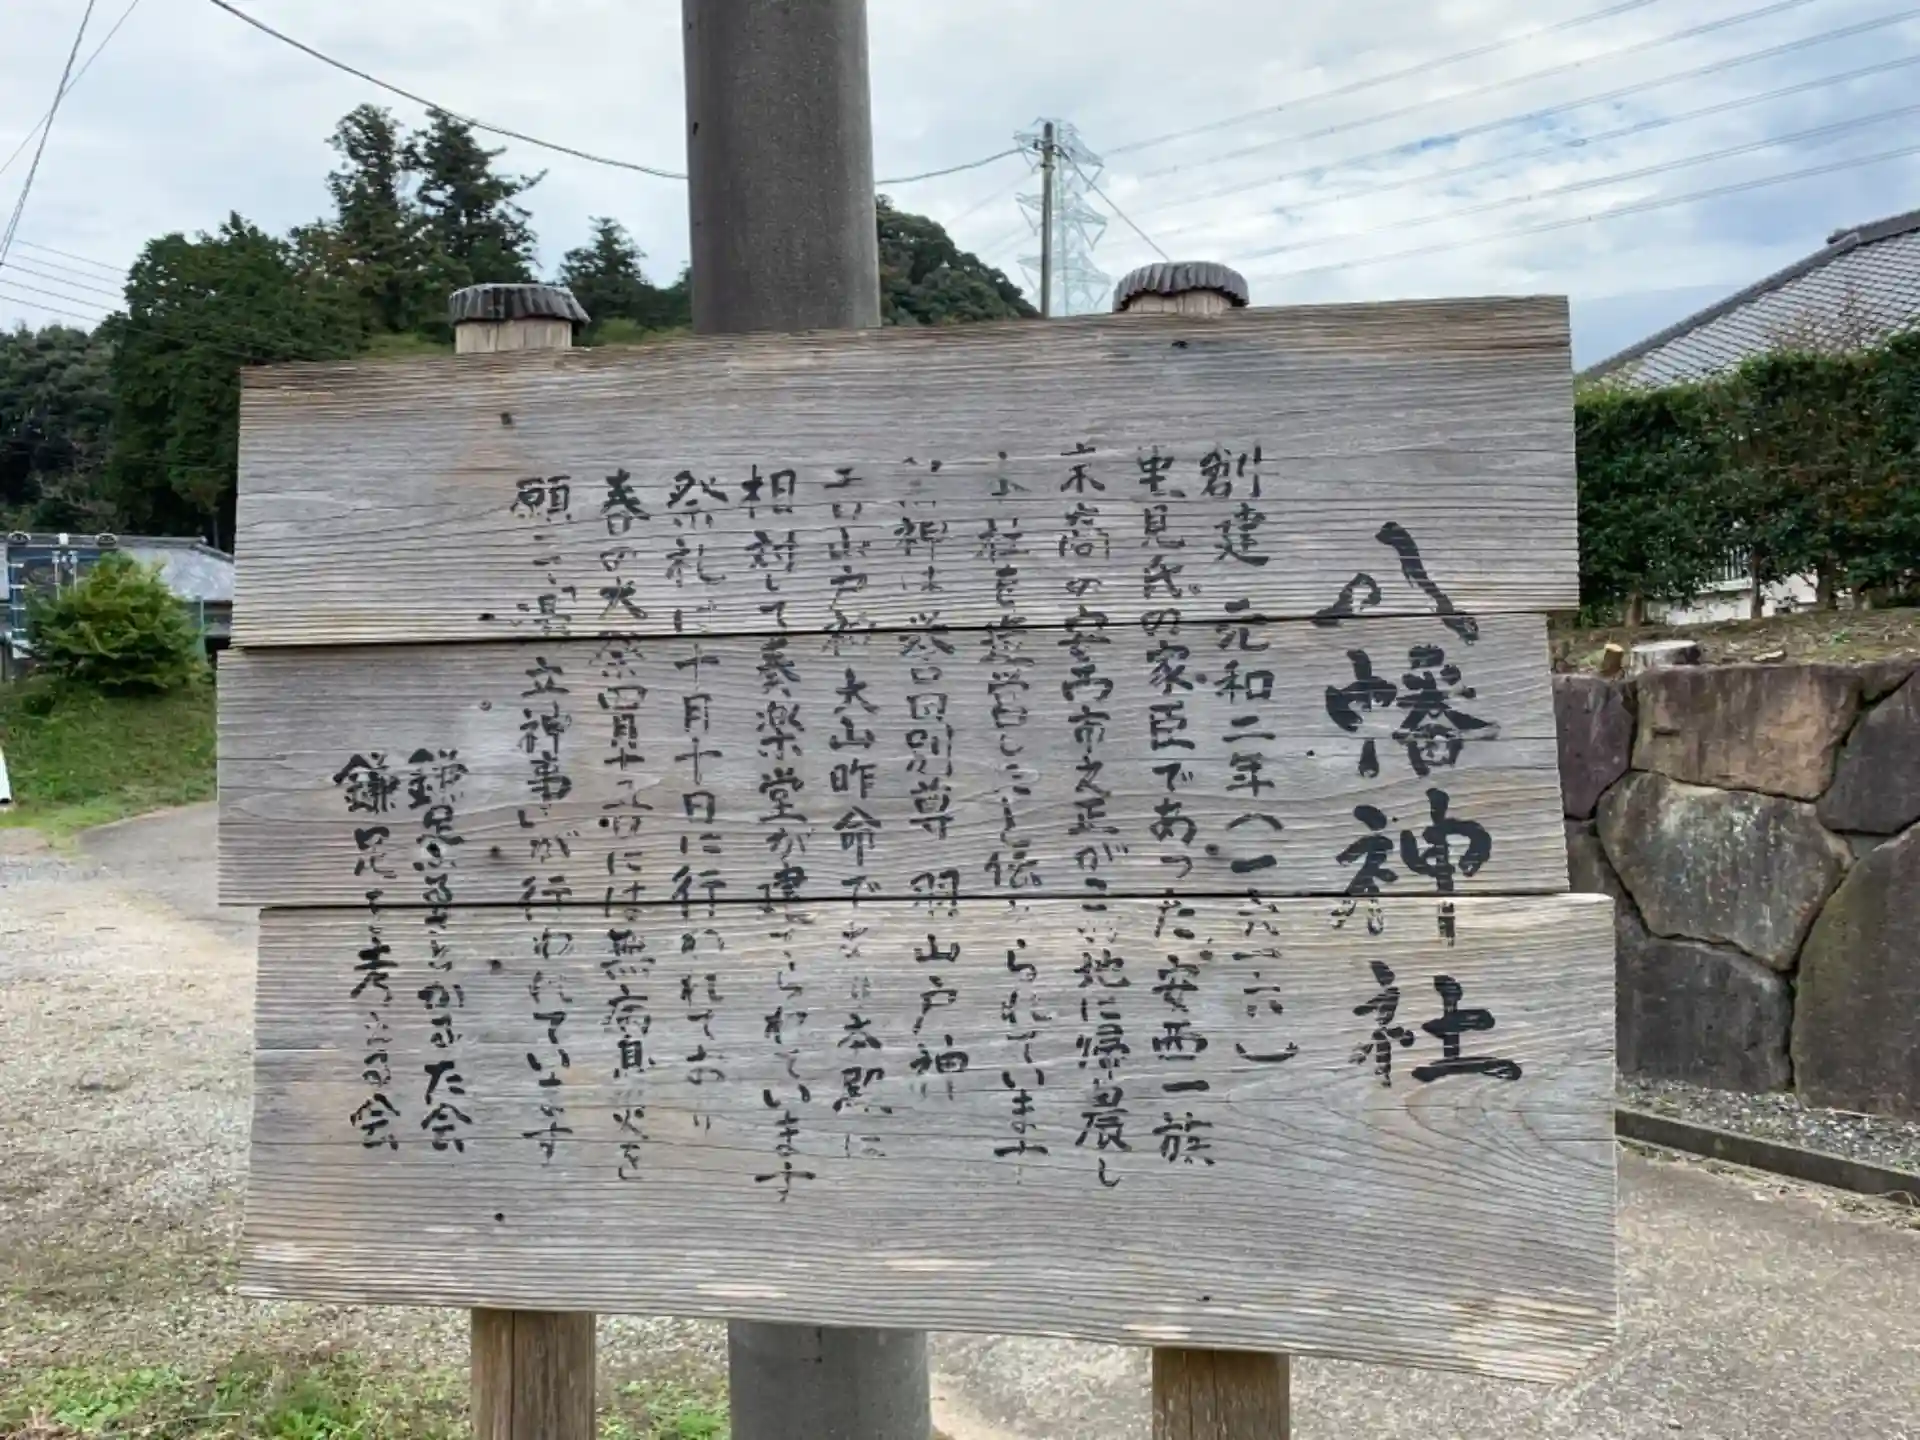 八幡神社
創建 元和二年(一六一六)
見氏の家臣であった安西一族
末裔の安西市之正がこの地に帰農し
社を造営したと伝えられています
祭神は誉田別尊 羽山戸神
羽山戸神 大山咋命です 本殿に
相対して奏楽堂が建てられています
祭礼は十月十日に行われており
春の火祭四月十五日には無病息災を
願って湯立神事が行われています
鎌足ふるさとかるた会
鎌足を考える会